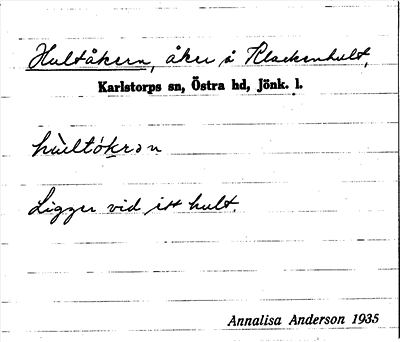 Hultåkern, åker å Klackenhult,
Karlstorps sn, Östra hd, Jönk. l.
hùltókrən
Ligger vid ett hult.
Annalisa Anderson 1935